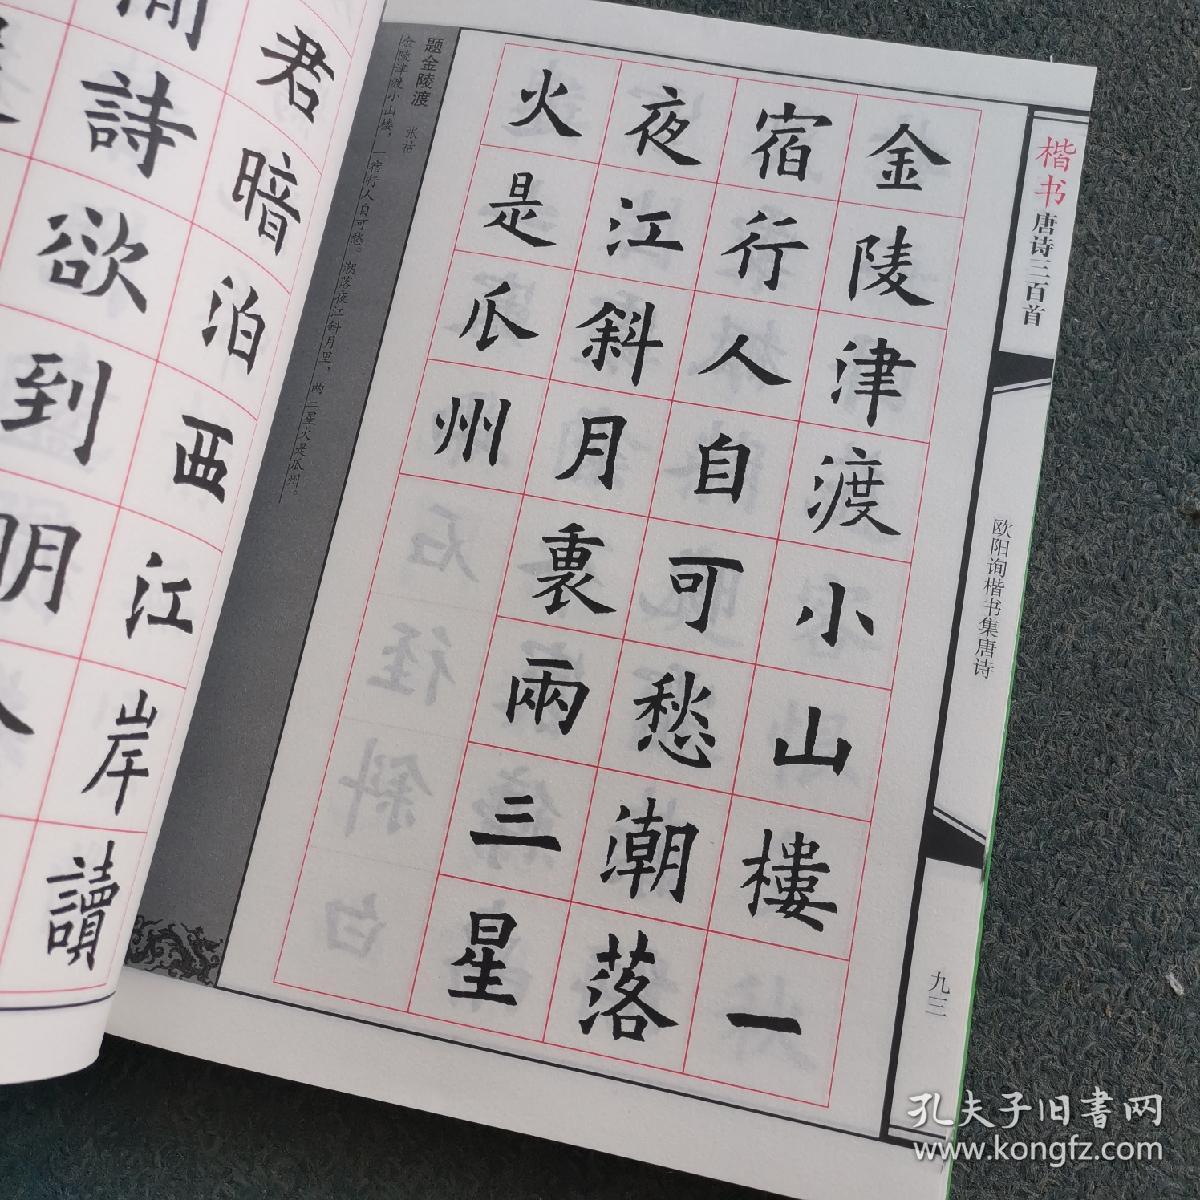 楷书
唐诗三百首
欧阳询楷书集唐诗
九三
金陵津渡小山樓一
宿行人自可愁潮落
夜江斜月裏兩三星
火是瓜州
题金陵渡 张祜
金陵津渡小山楼，一宿行人自可愁。潮落夜江斜月里，两三星火是瓜州。
君暗泊西江岸讀
詩欲到明
孔夫子旧书网
www.kongfz.com